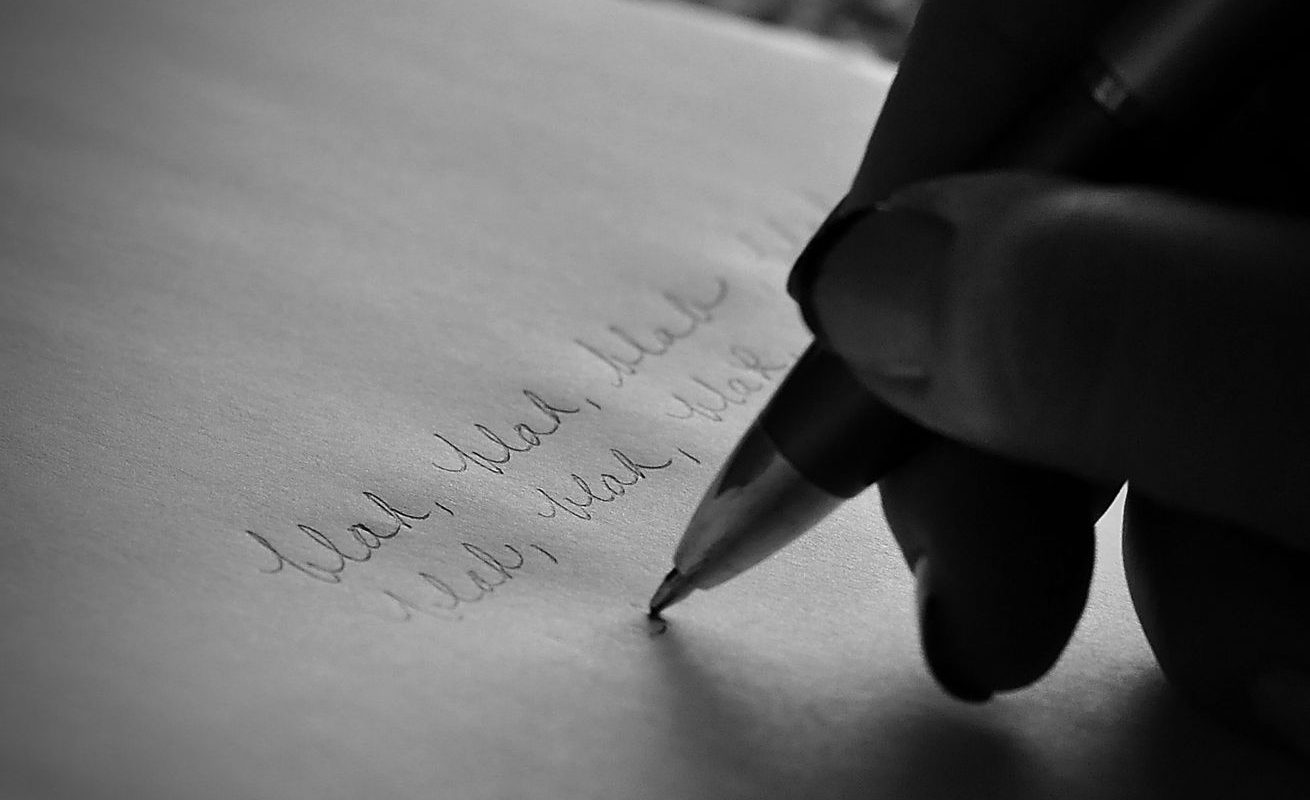 blah, blah, blah
blah, blah, blah,